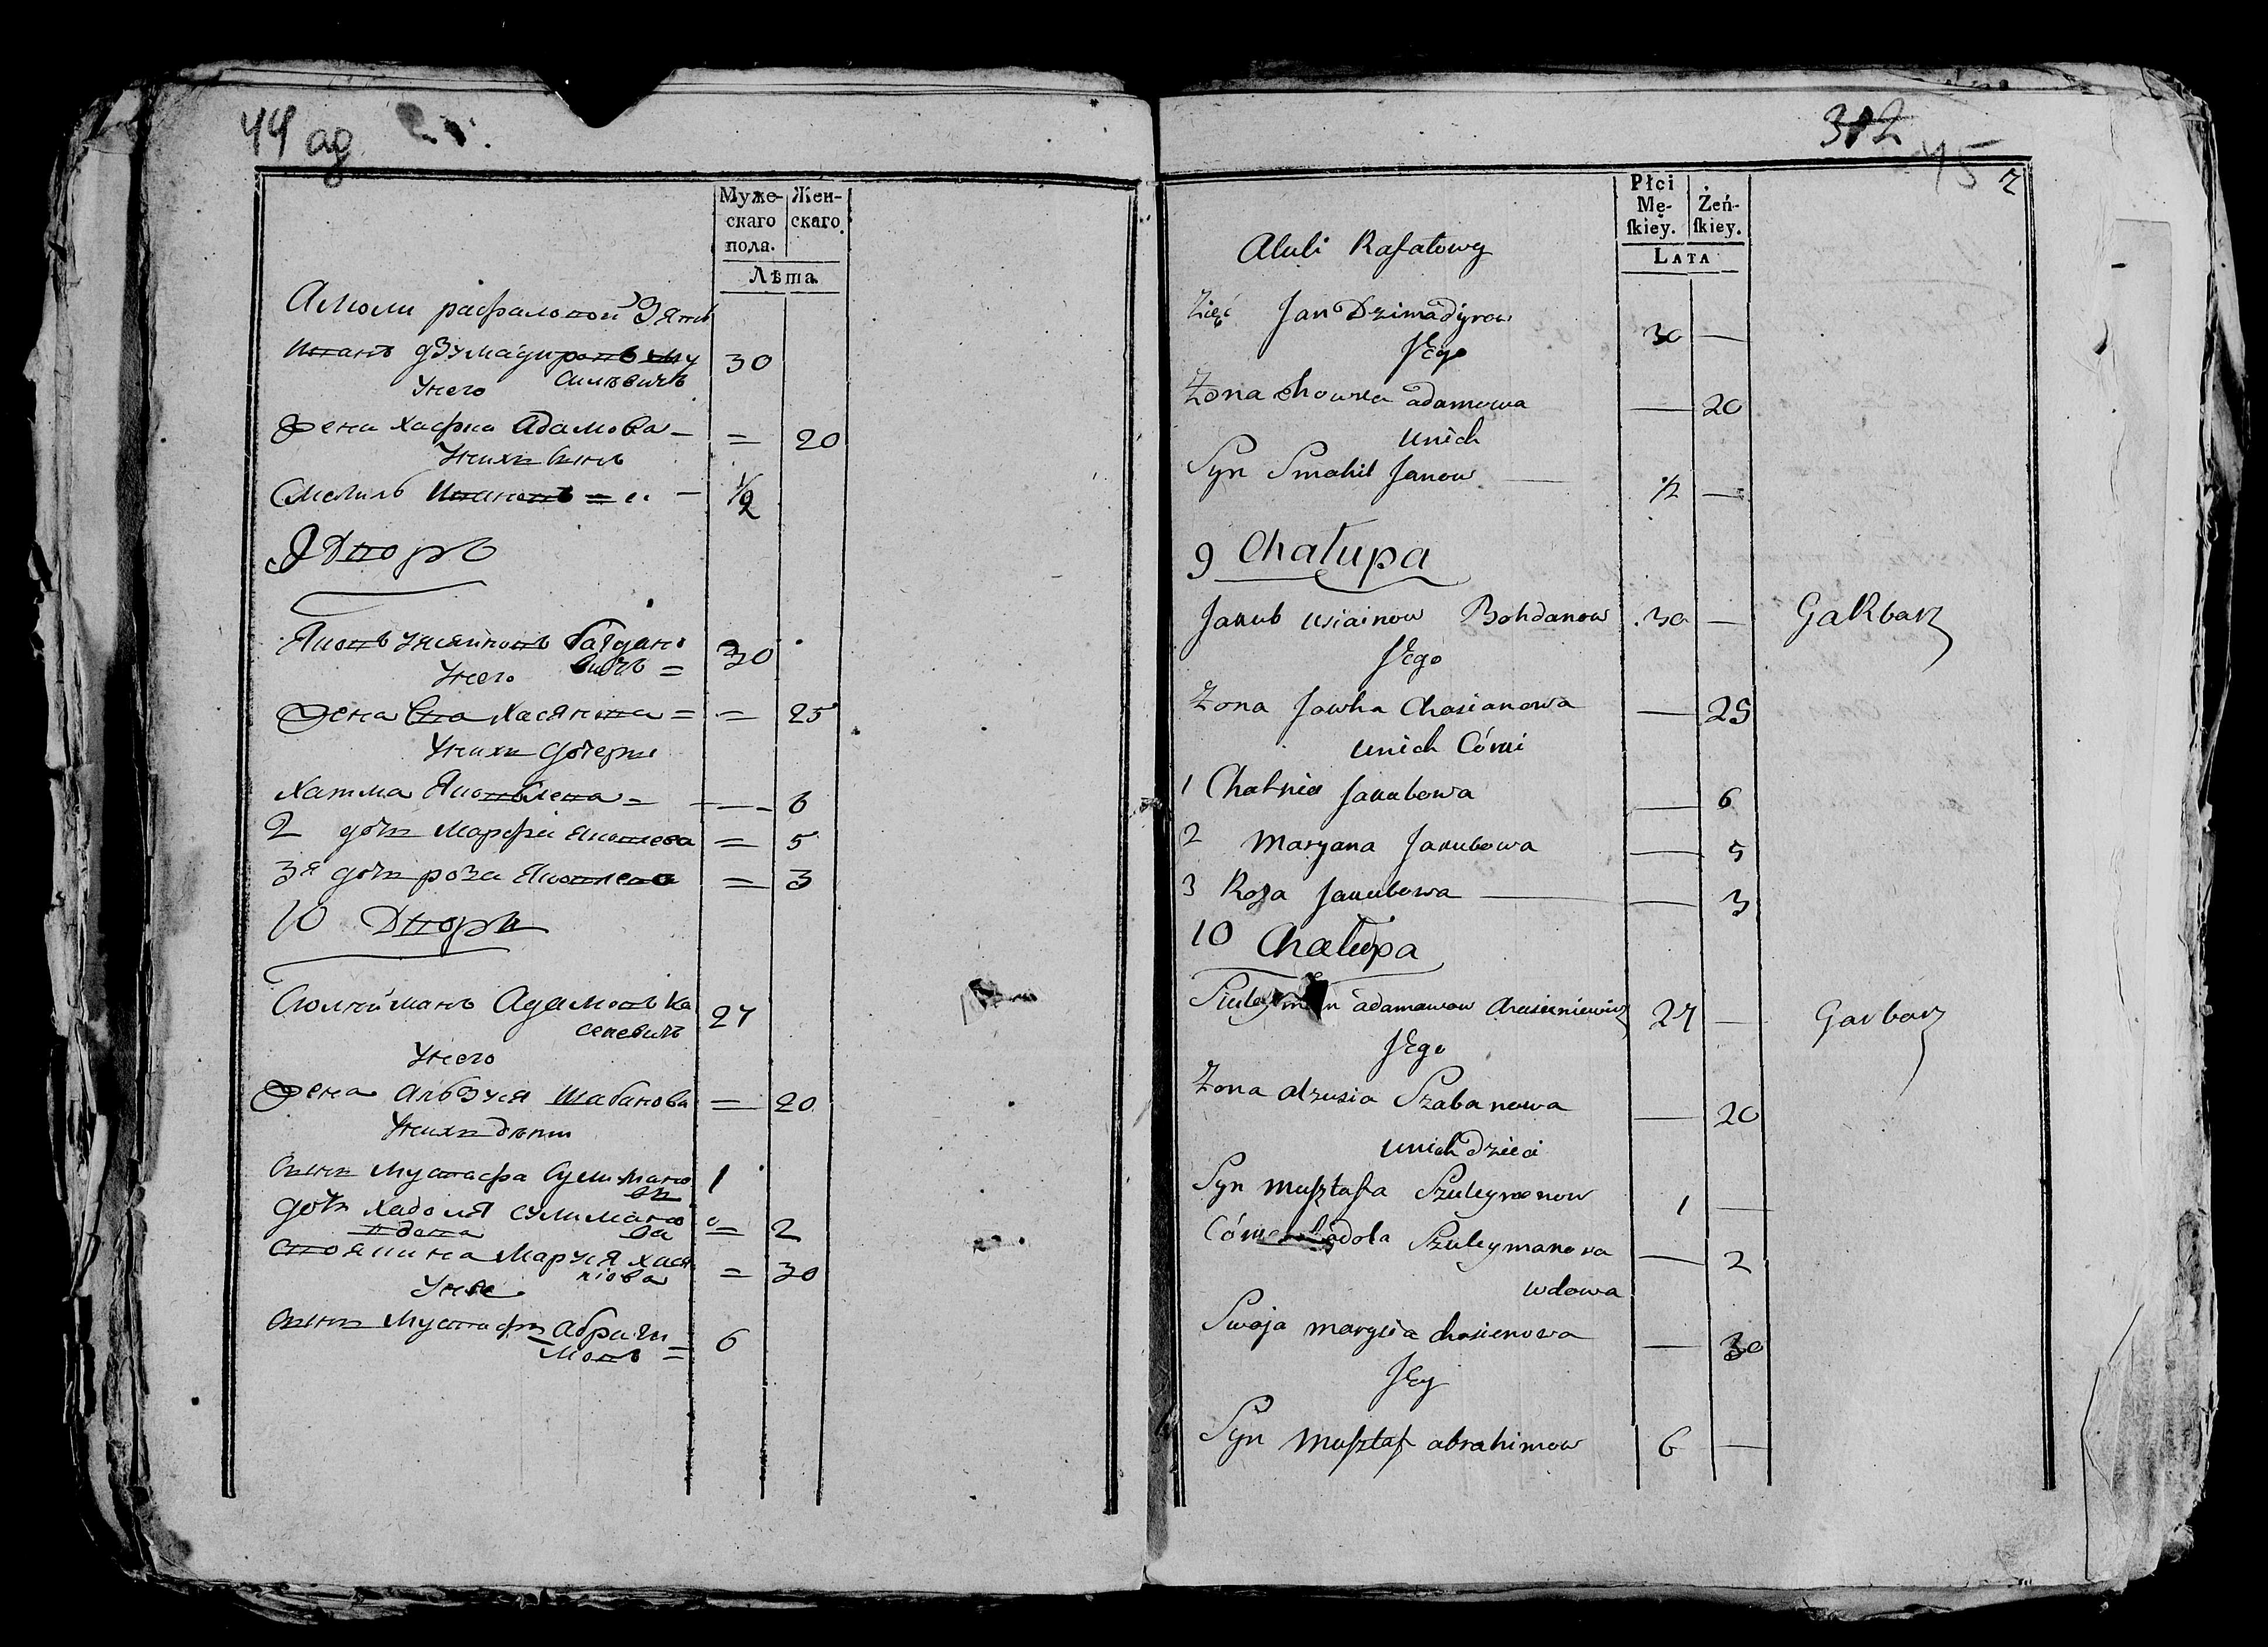 44 ag
Муже-
скаго
пола.
Жен-
скаго.
Лѣта
Амоли рафаловой Зять
Иванъ дзумадировъ му
силѣвичь
30
Унего
Жена Хафиа Адамова = 20
Унихъ сынъ
Смолиль Ивановъ = 1/2
9 Дворъ
Яковъ Усяиновъ Багдано
вичь = 30
Унего
Жена Ева Хасянова = = 25
Унихъ дочерии
Хатма Яковлева = 6
2 дочь Марфа Яковлева = 5
3я дочь роза Яковлева = 3
10 Дворъ
Сюлейманъ Адамовъ Ка
сеневичь 27
Унего
Жена Альзуня Шабанова = 20
Унихъ дѣти
Сынъ Мустафа Сулимано
въ 1
дочь Хадоля сулимано
ва = 2
вдова
своячина Маруся хася
нова = 30
Унее
Сынъ Мустафъ Абраги
мовъ = 6
312
45
Płci
Mę-
ſkiey.
Żeń-
ſkiey.
LATA
Aluli Rafałowy
Zięć Jan Dzimadyrow 30 —
Jego
Żona Chowra adamowa — 20
unich
Syn Smahil Janow — 1/2 —
9 Chałupa
Jakub usiainow Bohdanow 30 — Garbarz
Jego
Żona Jewha Chasianowa — 25
unich Córki
1 Chatnia Jakubowa — 6
2 Maryana Jakubowa — 5
3 Roza Jakubowa — 3
10 Chałupa
Siuleyman adamowow Chasieniewicz 27 — Garbarz
Jego
Żona alzusia Szabanowa — 20
unich dzieci
Syn Musztafa Szuleymanow 1 —
Córka Chadola Szuleymanowa — 2
wdowa
Swoja marysia chasienowa — 30
Jey
Syn Musztaf abrahimow 6 —